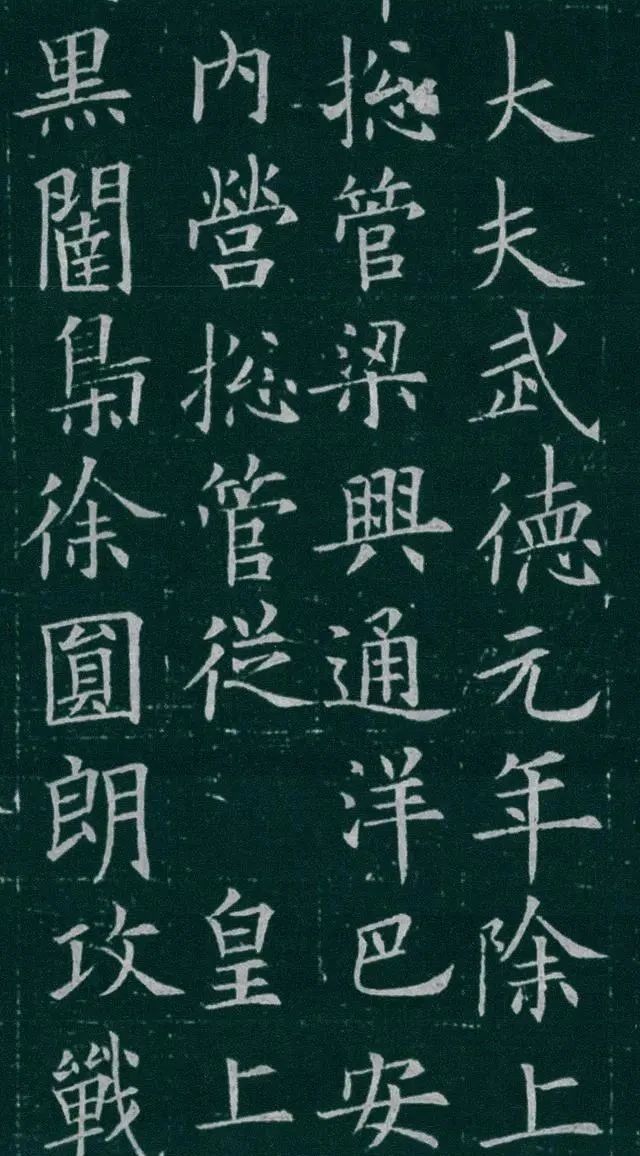 大夫武徳元年除上
揔管梁興通洋巴安
内營揔管従 皇上
黑闥梟徐圓朗攻戰